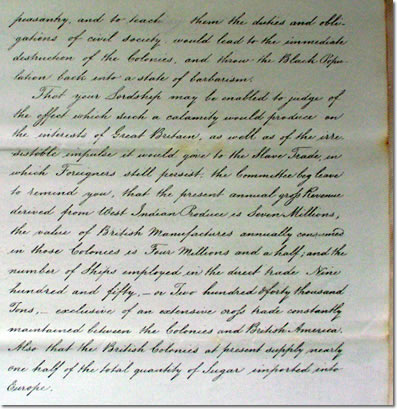 peasantry, and to teach them the duties and obli-
gations of civil society, would lead to the immediate
destruction of the Colonies, and throw the Black Popu-
lation back into a state of barbarism.
That your Lordship may be enabled to judge of
the effect which such a calamity would produce on
the interests of Great Britain, as well as of the irre-
sistible impulse it would give to the Slave Trade, in
which Foreigners still persist, the Committee beg leave
to remind you, that the present annual gross Revenue
derived from West Indian Produce is Seven Millions,
the value of British Manufactures annually consumed
in those Colonies is Four Millions and a half; and the
number of Ships employed in the direct trade Nine
hundred and fifty, – or Two hundred & forty thousand
Tons, – exclusive of an extensive cross trade constantly
maintained between the Colonies and British America.
Also that the British Colonies at present supply nearly
one half of the total quantity of Sugar imported into
Europe.